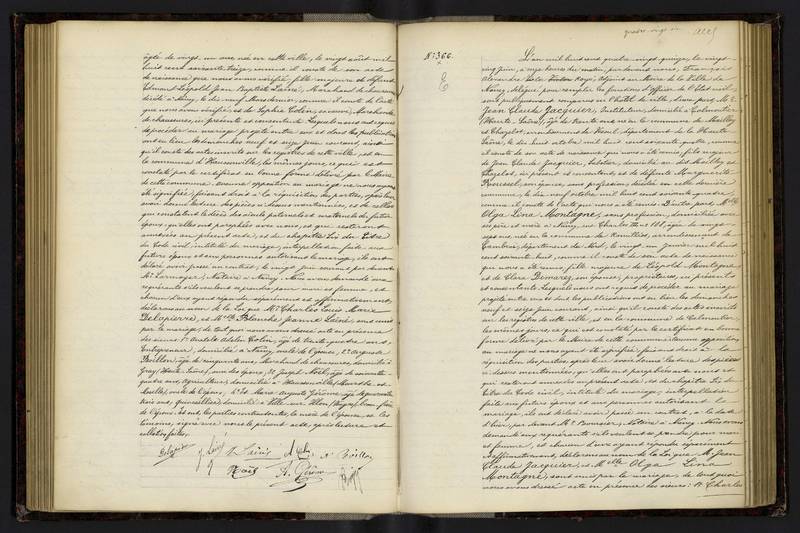 âgée de vingt un ans née en cette ville, le vingt août mil
huit cent soixante treize, comme il conste de son acte
de naissance que nous avons vérifié, fille majeure de défunt
Edmond Léopold Jean Baptiste Lainé, Marchand de chaussures
décédé à Nancy, le dix neuf comme il conste de l'acte
que nous avons vérifié et de Sophie Colin, sa veuve, Marchande
de chaussures, ici présente et consentante. Lesquels nous ont requis
de procéder au mariage projeté entre eux et dont les publications
ont eu lieu les dimanches neuf et seize juin courant, ainsi
qu'il conste des actes inscrits sur les registres de cette ville, et en
la commune d'Haussonville, les mêmes jours, ce qui est
constaté par le certificat en bonne forme délivré par le Maire
de cette commune, aucune opposition au mariage ne nous ayant
été signifiée, faisant droit à la réquisition des parties, après leur
avoir donné lecture des pièces ci dessus mentionnées, et de celles
qui constatent le décès des aïeuls paternels et maternels du futur
époux, qu'elles ont paraphées avec nous, et qui resteront
annexées au présent acte, et du chapitre six du Titre
du Code civil, intitulé du mariage, interpellation faite aux
futurs époux et aux personnes autorisant le mariage, ils ont
déclaré avoir passé un contrat, le vingt juin courant par devant
Me Larmoyer, Notaire à Nancy. Nous avons demandé aux
requérants s'ils veulent se prendre pour mari et femme, et
chacun d'eux ayant répondu séparément et affirmativement,
déclarons au nom de la Loi que Mr Charles Louis Marie
Delapierre, et Melle Blanche Jeanne Lainé, sont unis
par le mariage, de tout quoi nous avons dressé acte en présence
des sieurs: 1° Anatole Adolphe Colin, âgé de trente quatre ans,
Entrepreneur, domicilié à Nancy, oncle de l'épouse, 2° Auguste
Boillon, âgé de cinquante ans, Marchand de chaussures, domicilié à
Gray (Haute Saône), ami des époux, 3° Joseph Noël, âgé de soixante
quatre ans, Agriculteur, domicilié à Haussonville (Meurthe et
Moselle), oncle de l'époux, 4° Marie Auguste Gérôme, âgé de
trois ans, quincaillier, domicilié à Ville sur Illon (Vosges),
de l'époux. Et ont, les parties contractantes, la mère de l'épouse, et les
témoins, signé avec nous le présent acte, après lecture et
collation faites.
Delapierre J. Lainé V. Lainé A. Colin A. Boillon
Noël A. Gérôme
N° 366.
L'an mil huit cent quatre vingt quinze, le vingt-
cinq juin, à onze heures du matin, par devant nous, François
Alexandre adjoint au Maire de la Ville de
Nancy, délégué pour remplir les fonctions d'officier de l'État civil,
sont publiquement comparus en l'hôtel de ville, d'une part Mr
Jean Claude Jacquier, Instituteur, domicilié à Colombier
(Haute Saône), âgé de trente ans, né en la commune de Mailley
et Chazelot, arrondissement de Vesoul, département de la Haute
Saône, le dix huit cent soixante quatre, comme
il conste de son acte de naissance qui nous a été remis, fils majeur
de Jean Claude Jacquier, domicilié au dit Mailley et
Chazelot, ici présent et consentant, et de défunte Marguerite
Roussel, son épouse, sans profession, décédée en cette dernière
commune, le dix neuf mil huit cent soixante quatre,
comme il conste de l'acte qui nous a été remis. D'autre part, Melle
Olga Lina Montagne, sans profession, domiciliée avec
ses père et mère à Nancy, rue Charles III 108, âgée de vingt
sept ans, née en la commune de Rumilly, arrondissement de
Cambrai, département du Nord, le vingt un Janvier mil huit
cent soixante huit, comme il conste de son acte de naissance
qui nous a été remis, fille majeure de Léopold Montagne
et de Claire Demarez, son épouse, propriétaires, ici présents
et consentants. Lesquels nous ont requis de procéder au mariage
projeté entre eux et dont les publications ont eu lieu les dimanches
neuf et seize juin courant, ainsi qu'il conste des actes inscrits
sur les registres de cette ville, et en la commune de Colombier,
les mêmes jours, ce qui est constaté par le certificat en bonne
forme délivré par le Maire de cette commune, aucune opposition
au mariage ne nous ayant été signifiée, faisant droit à la
réquisition des parties, après leur avoir donné lecture des pièces
ci dessus mentionnées, qu'elles ont paraphées avec nous et
qui resteront annexées au présent acte, et du chapitre six du
Titre du Code civil, intitulé du mariage, interpellation
faite aux futurs époux et aux personnes autorisant le
mariage, ils ont déclaré avoir passé un contrat, à la date
d'hier, par devant Me Boursier, Notaire à Nancy. Nous avons
demandé aux requérants s'ils veulent se prendre pour mari
et femme, et chacun d'eux ayant répondu séparément
et affirmativement, déclarons au nom de la Loi que Mr Jean
Claude Jacquier, et Melle Olga Lina
Montagne, sont unis par le mariage, de tout quoi
nous avons dressé acte en présence des sieurs: 1° Charles